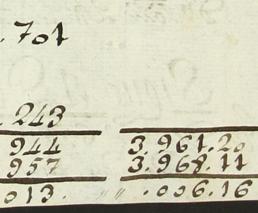 .701
.243
944 3.961.20
957 3.968.11
013. " .006.16